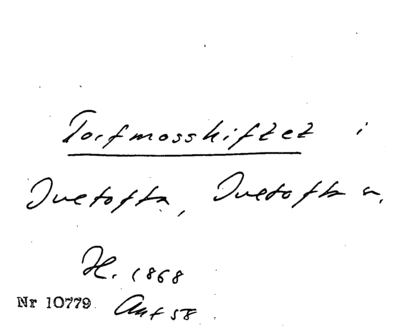 Torfmosskiftet i
Ivetofta, Ivetofta s.
H. 1868
Nr 10779 Ant 58